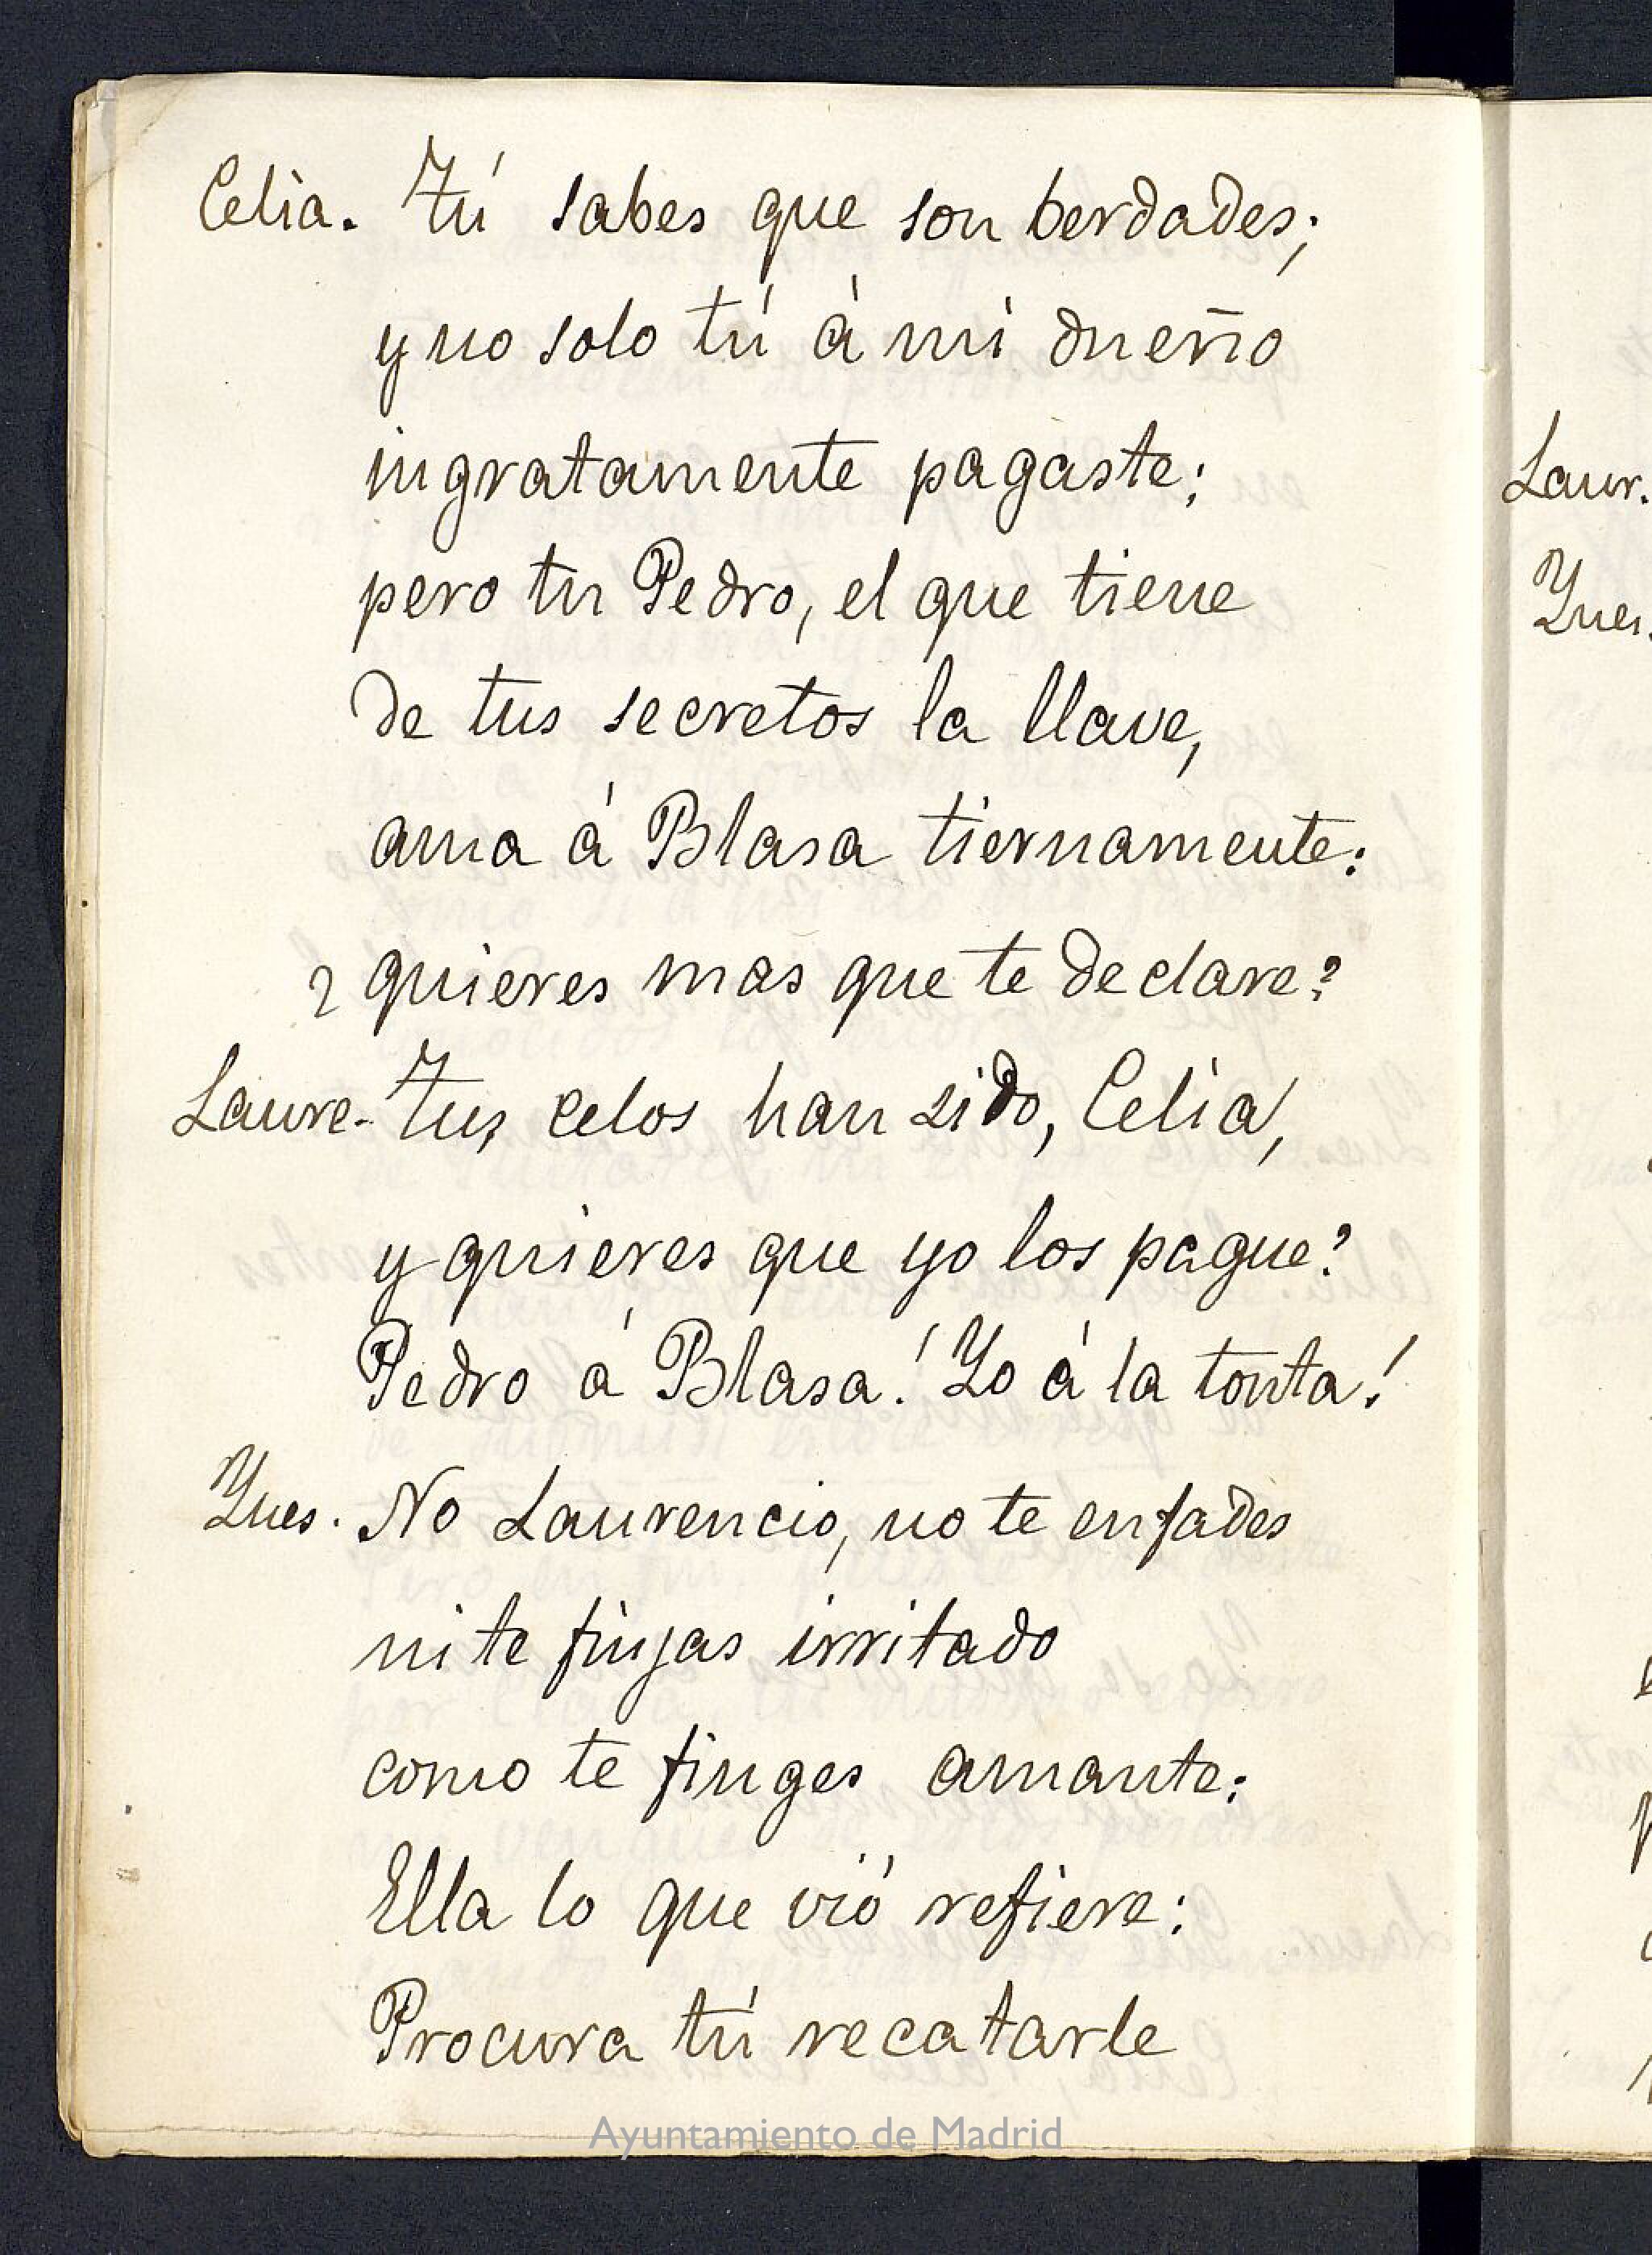 Celia. Tú sabes que son berdades;
y no solo tú á mi dueño
ingratamente pagaste;
pero tu Pedro, el que tiene
de tus secretos la llave,
ama á Blasa tiernamente:
¿quieres mas que te declare?
Laure. Tus celos han sido, Celia,
y quieres que yo los pague?
Pedro á Blasa! Yo á la tonta!
Ynes. No Laurencio, no te enfades
ni te finjas irritado
como te finges amante:
Ella lo que vió refiere:
Procura tú recatarle
Ayuntamiento de Madrid
Laur.
Ynes.